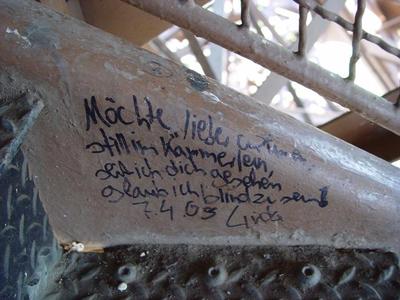 Möchte lieber weinen
still im Kämmerlein,
seit ich dich gesehen
glaub ich blind zu sein
7.4.03